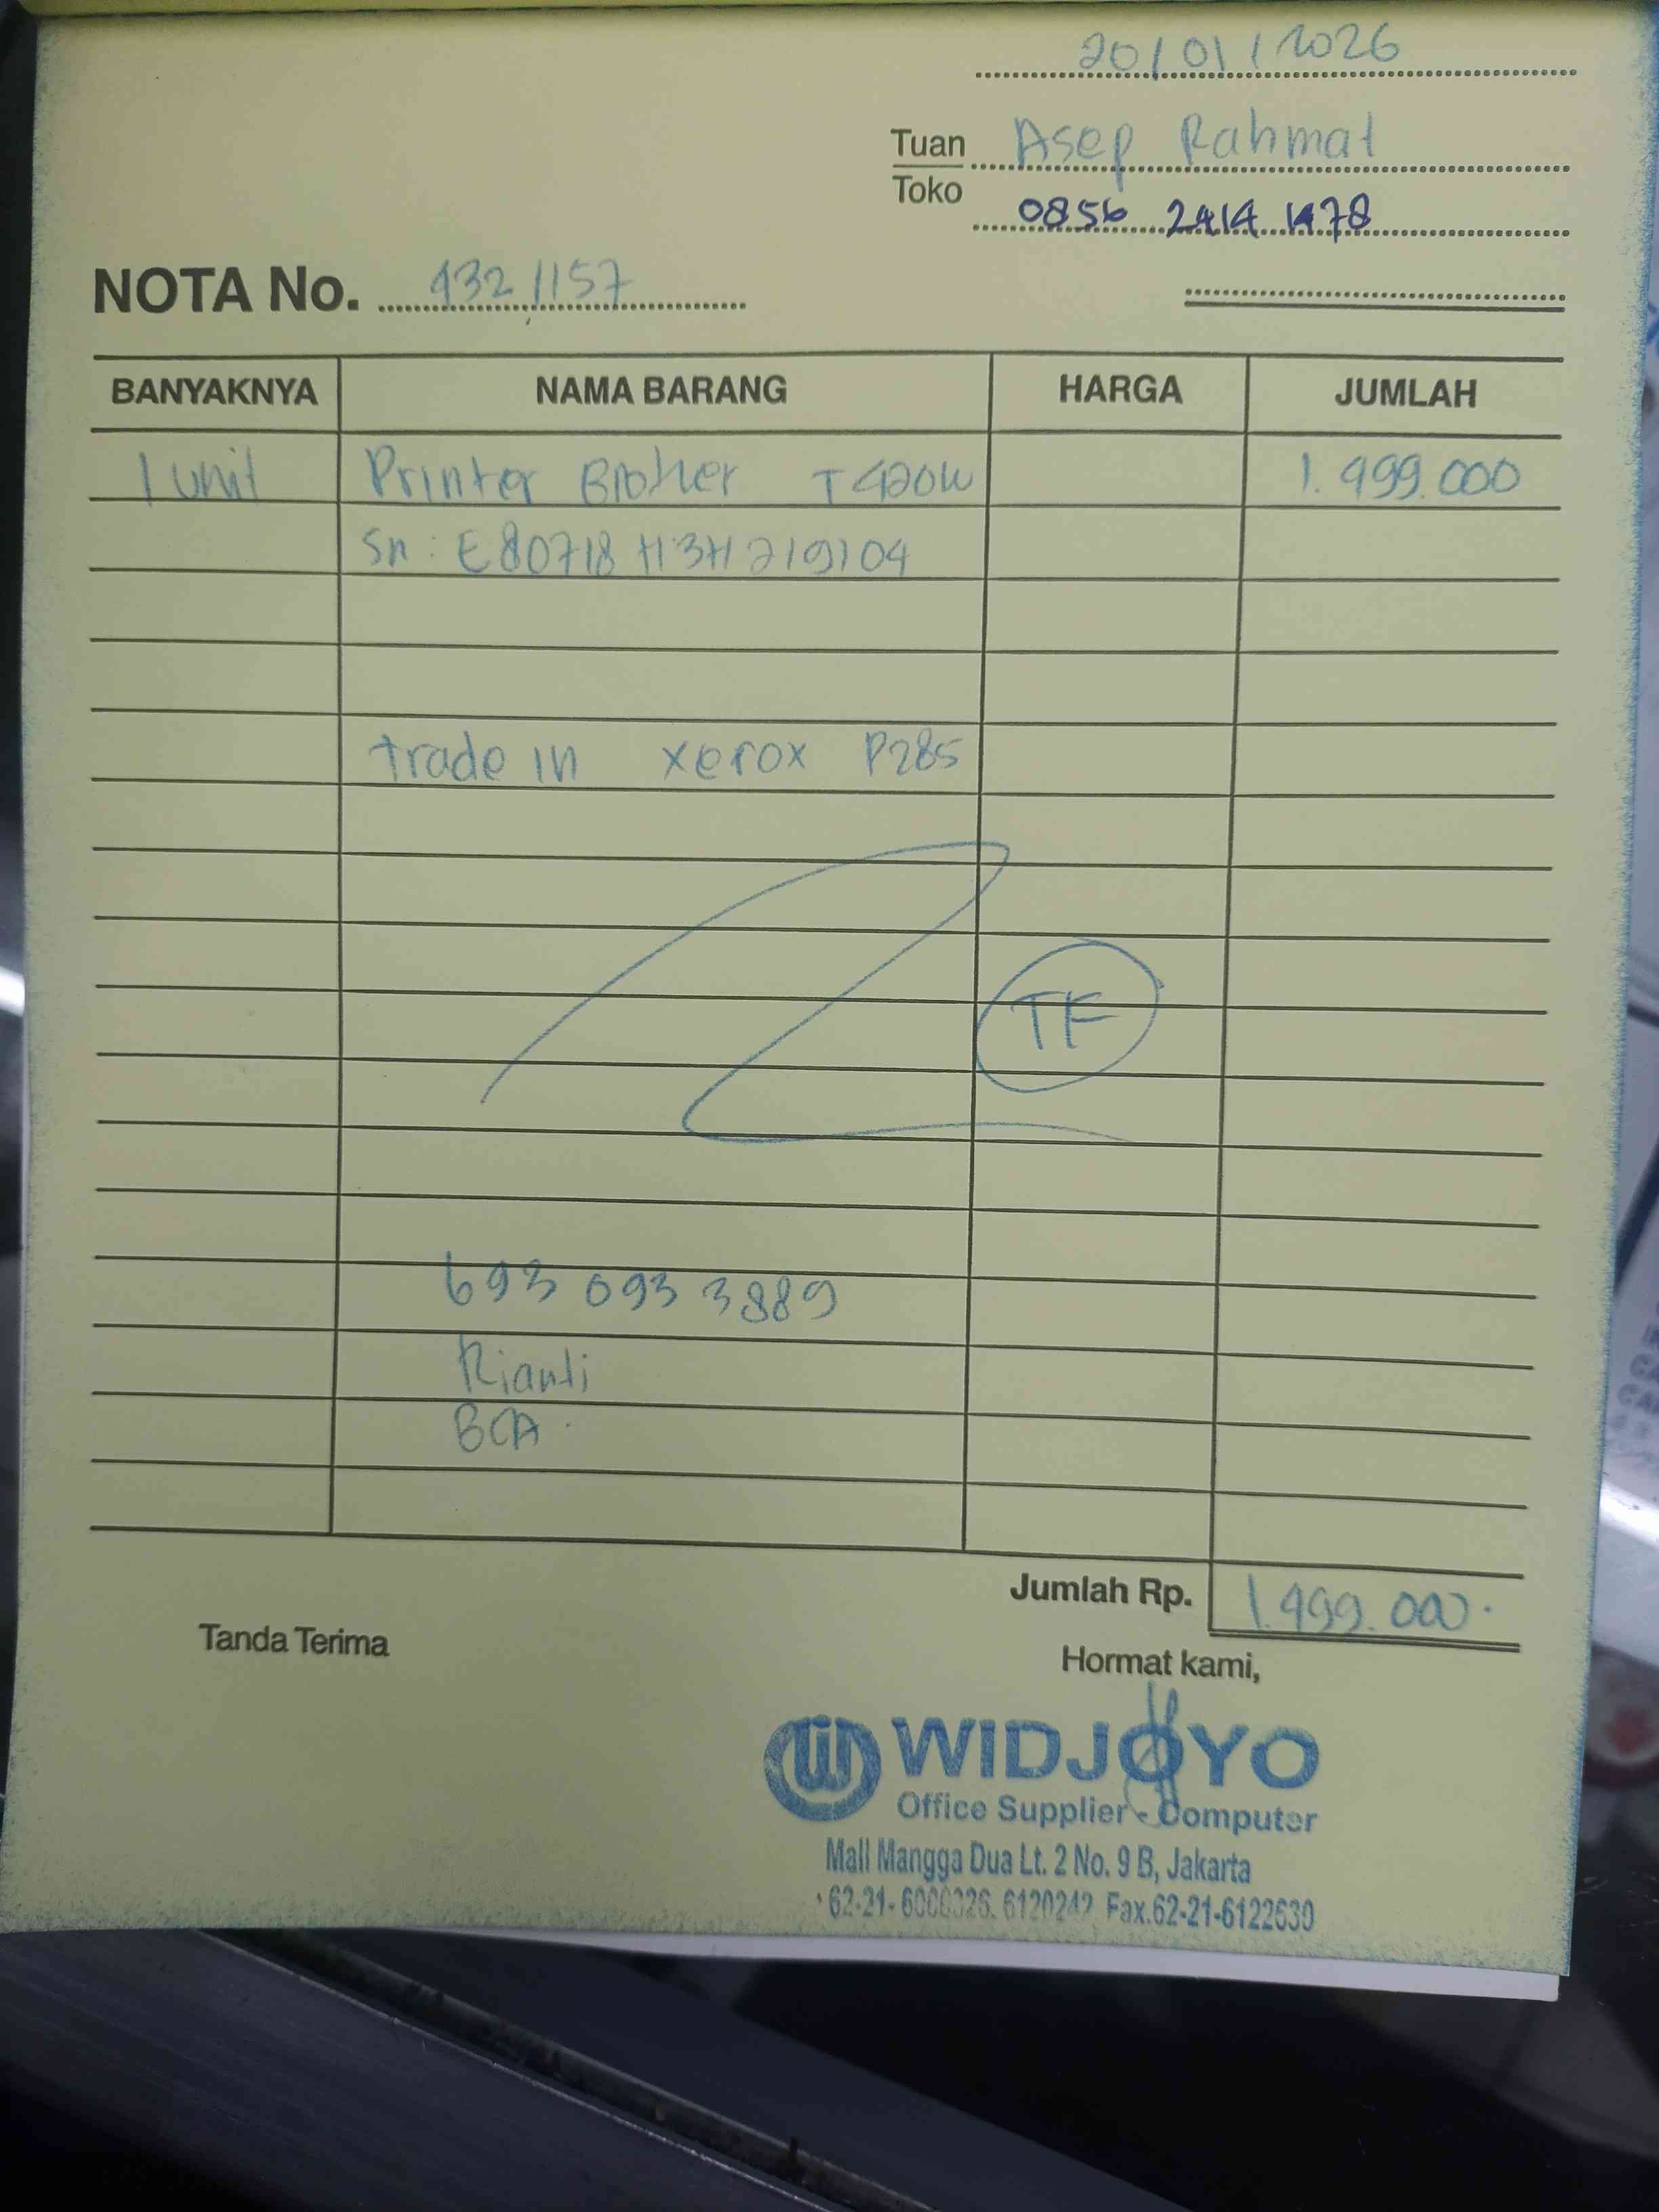 20/01/2026
Tuan Asep Rahmat
Toko
0856 2414 1478
NOTA No. 432/157
BANYAKNYA NAMA BARANG HARGA JUMLAH
1 unit Printer Brother T420W 1.499.000
Sn : E80718H3H219104
trade in xerox P285
TF
693 093 3889
Rianti
BCA
Jumlah Rp. 1.499.000
Tanda Terima Hormat kami,
WIDJOYO
Office Supplier - Computer
Mall Mangga Dua Lt. 2 No. 9 B, Jakarta
Fax.62-21-6122630